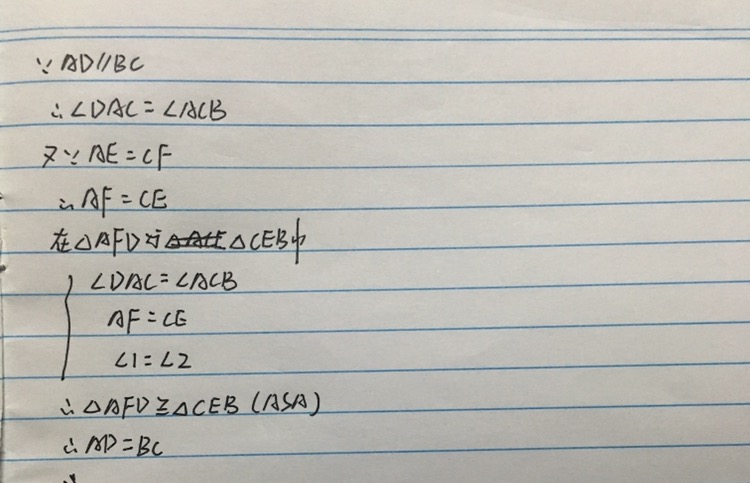 ∵ AD//BC
∴∠DAC=∠ACB
又∵ AE=CF
∴ AF=CE
在△AFD与△CEB中
∠DAC=∠ACB
AF=CE
∠1=∠2
∴△AFD≌△CEB (ASA)
∴AD=BC